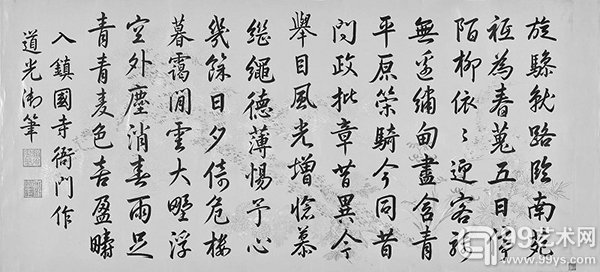 旋驂就路臨南苑
祗為春蒐五日寧
陌柳依〻迎客
無邊繡甸盡含青
平原策騎今同昔
問政批章昔異今
舉目風光增慘慕
繼繩德薄惕予心
幾餘日夕倚危樓
暮靄閒雲大野浮
空外塵消春雨足
青青麥色喜盈疇
入鎮國寺衙門作
道光御筆
99艺术网
www.99ys.com